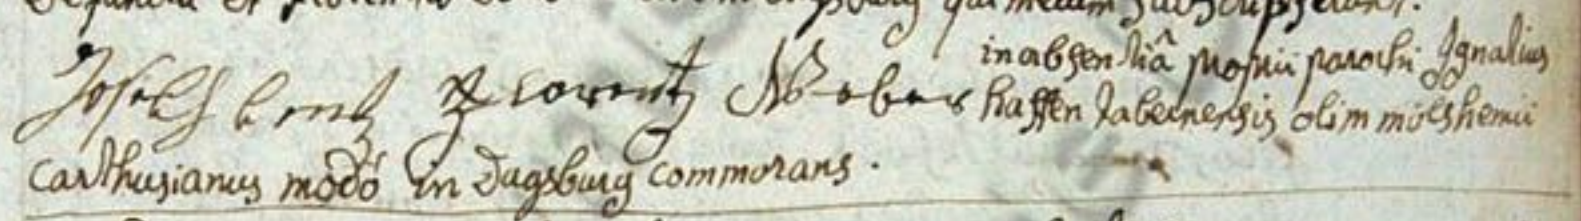 qui mecum subscripserunt.
Joseph lentz florentz Weber in absentiâ proprii parochi Ignatius
haffen tabernensis olim molshemii
Carthusianus modó in Dagsburg commorans.